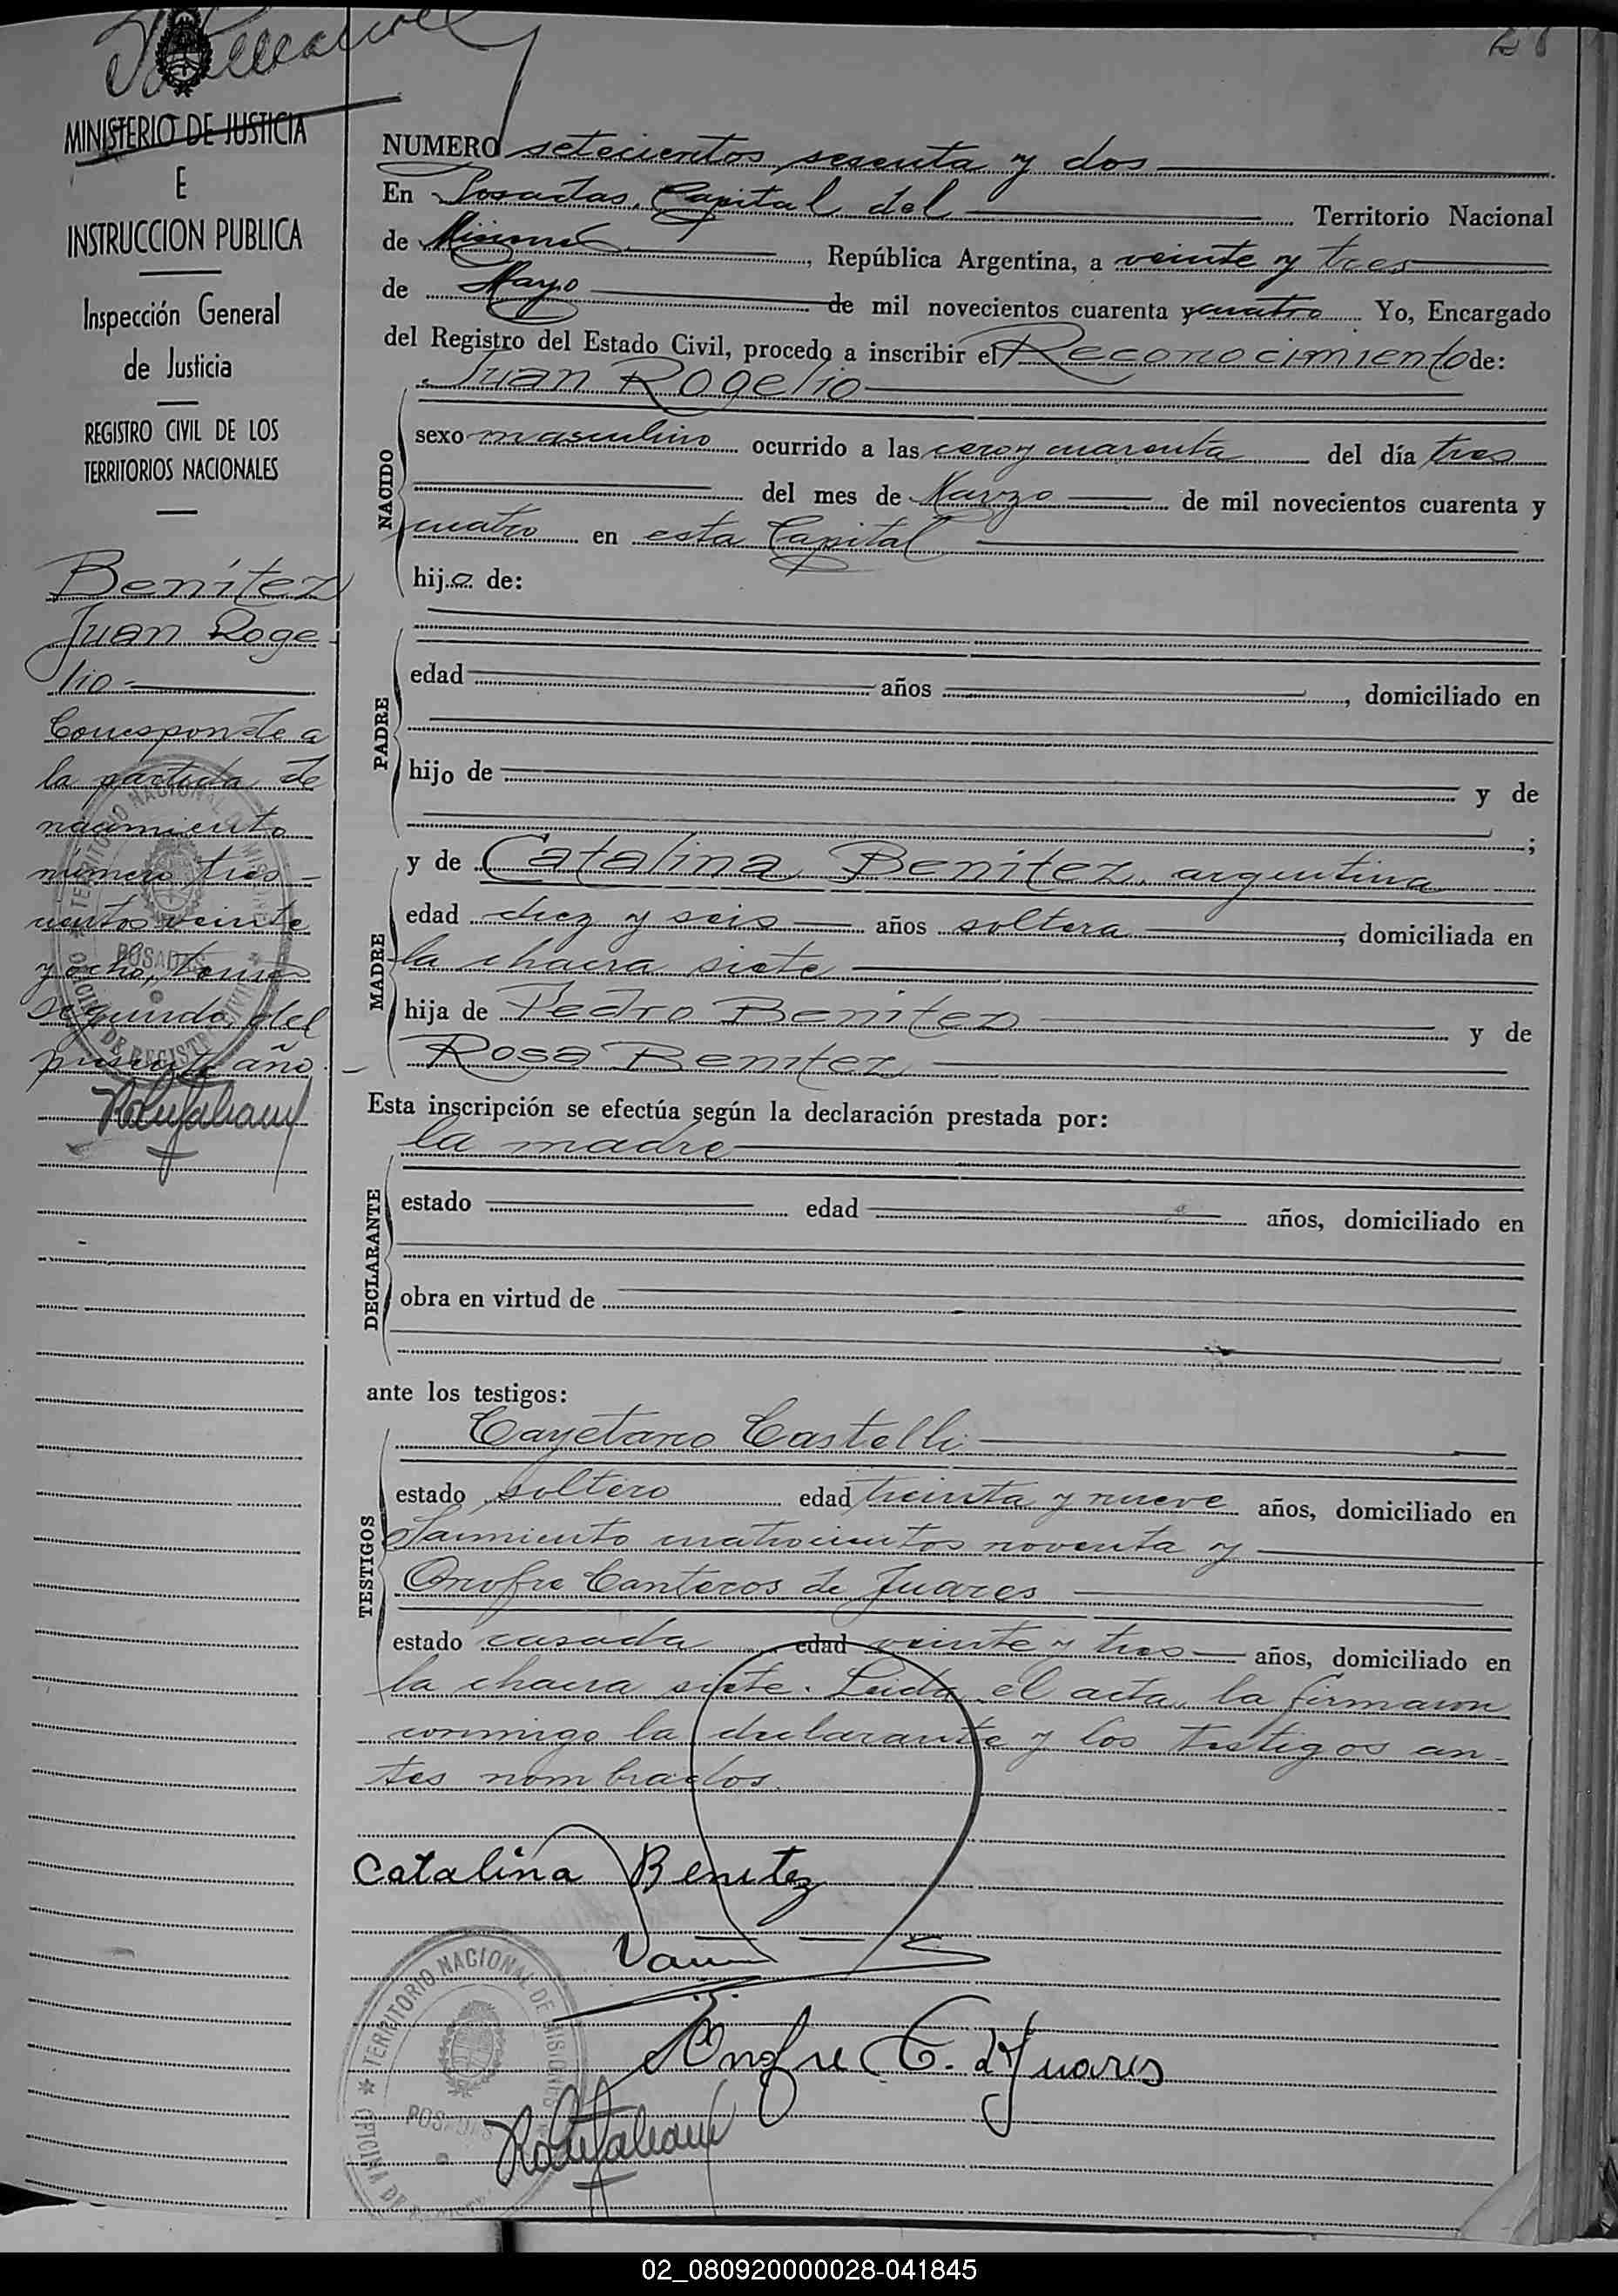 28
MINISTERIO DE JUSTICIA
E
INSTRUCCION PUBLICA
Inspección General
de Justicia
REGISTRO CIVIL DE LOS
TERRITORIOS NACIONALES
Benítez
Juan Roge-
lio.-
Corresponde a
la partida de
nacimiento
número tres-
cientos veinte
y ocho, tomo
segundo, del
presente año.-
NUMERO setecientos sesenta y dos
En Posadas, Capital del Territorio Nacional
de Misiones, República Argentina, a veinte y tres
de Mayo de mil novecientos cuarenta y cuatro Yo, Encargado
del Registro del Estado Civil, procedo a inscribir el Reconocimiento de:
Juan Rogelio
NACIDO
sexo masculino ocurrido a las cero y cuarenta del día tres
del mes de Marzo de mil novecientos cuarenta y
cuatro en esta Capital
hijo de:
PADRE
edad años , domiciliado en
hijo de y de
;
MADRE
y de Catalina Benitez, argentina
edad diez y seis años soltera , domiciliada en
la chacra siete
hija de Pedro Benitez y de
Rosa Benitez
Esta inscripción se efectúa según la declaración prestada por:
la madre
DECLARANTE
estado edad años, domiciliado en
obra en virtud de
ante los testigos:
TESTIGOS
Cayetano Castelli
estado soltero edad treinta y nueve años, domiciliado en
Sarmiento cuatrocientos noventa y
Onofre Canteros de Juares
estado casada edad veinte y tres años, domiciliado en
la chacra siete. Leida el acta, la firmaron
conmigo la declarante y los testigos an-
tes nombrados.
Catalina Benitez
Onofre C. d Juares
TERRITORIO NACIONAL DE MISIONES
POSADAS
OFICINA DE
02_080920000028-041845